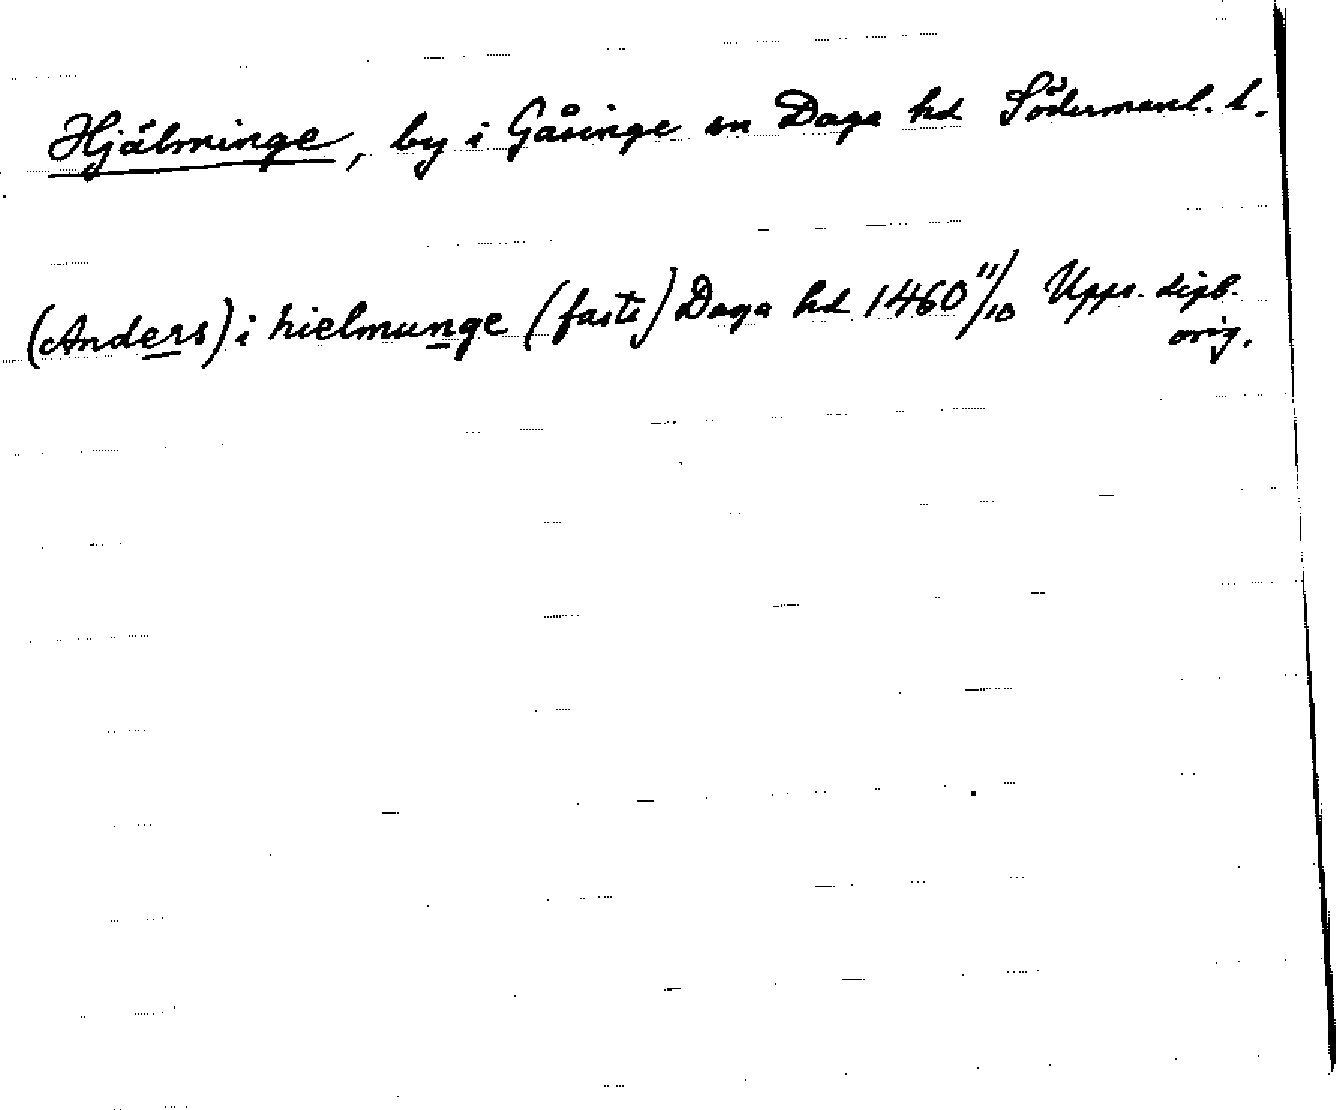 Hjälminge, by i Gåsinge sn Daga hd Södermanl. l.
(Anders) i hielmunge (faste) Daga hd 1460 11/10 Upps. dipl.
orig.